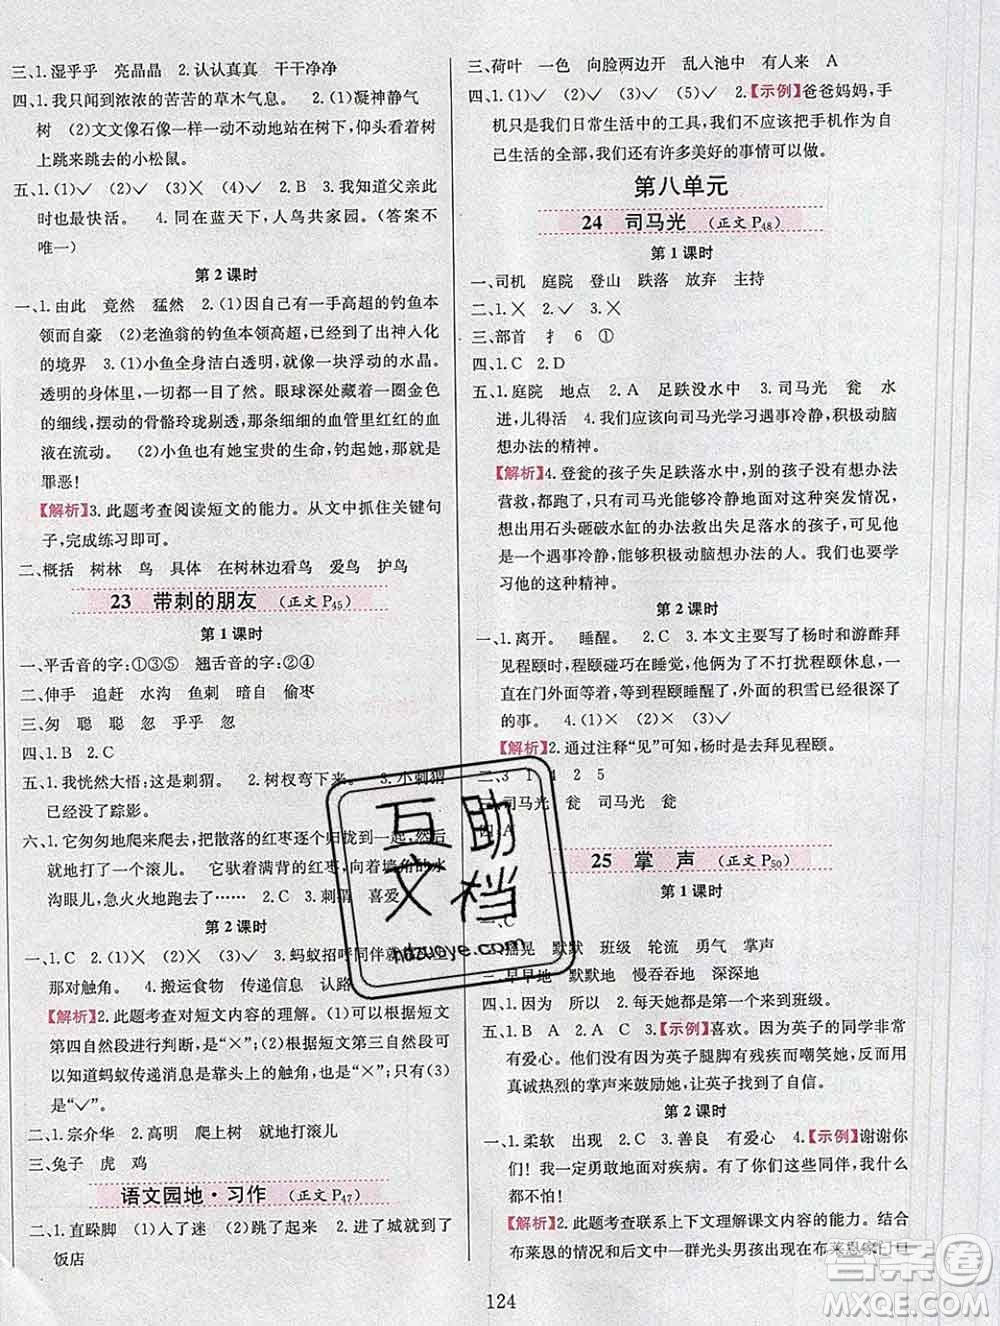 三、1.湿乎乎 亮晶晶 2.认认真真 干干净净
四、1.我只闻到浓浓的苦苦的草木气息。 2.(1)凝神静气
树 (2)文文像石像一样一动不动地站在树下,仰头看树
上跳来跳去的小松鼠。
五、1.(1)✓ (2)✓ (3)✕ (4)✓ 2.B 3.我知道父亲此
时也最快活。 4.同在蓝天下,人鸟共家园。(答案不
唯一)
第2课时
一、1.由此 竟然 猛然 2.(1)因自己有一手高超的钓鱼本
领而自豪 (2)老渔翁的钓鱼本领高超,已经到了出神入化
的境界 3.(1)小鱼全身洁白透明,就像一块浮动的水晶。
透明的身体里,一切都一目了然。眼球深处藏着一圈金色
的细线,摆动的骨骼玲珑剔透,那条细细的血管里红红的血
液在流动。 (2)小鱼也有她宝贵的生命,钓起她,就是
罪恶!
【解析】3.此题考查阅读短文的能力。从文中抓住关键句
子,完成练习即可。
二、概括 树林 鸟 具体 在树林边看鸟 爱鸟 护鸟
23 带刺的朋友 (正文P45)
第1课时
一、平舌音的字:①③⑤ 翘舌音的字:②④
二、伸手 追赶 水沟 鱼刺 暗自 偷枣
三、匆 聪 聪 忽 乎乎 忽
四、1.B 2.C
五、1.我恍然大悟:这是刺猬。 2.树杈弯下来。 3.小刺猬
已经没了踪影。
六、1.它匆匆地爬来爬去,把散落的红枣逐个归拢到一起,然后
就地打了一个滚儿。 它驮着满背的红枣,向着墙角的水
沟眼儿,急火火地跑去了…… 2.D 3.刺猬 喜爱
第2课时
一、1.C 2.(1)✕ (2)✕ (3)✓ 3.蚂蚁招呼同伴就
那对触角。 4.搬运食物 传递信息 认路
【解析】2.此题考查对短文内容的理解。(1)可以根据短文
第四自然段进行判断,是“✕”;(2)根据短文第三自然段可
以知道蚂蚁传递消息是靠头上的触角,是“✕”;只有(3)
是“✓”。
二、1.宗介华 2.高明 爬上树 就地打滚儿
三、兔子 虎 鸡
语文园地·习作 (正文P47)
二、1.直跺脚 (1)入了迷 (2)跳了起来 2.进了城就到了
饭店
三、荷叶 一色 向脸两边开 乱入池中 有人来 A
四、1.(1)✓ (2)✓ (3)✓ (5)✓ 2.【示例】爸爸妈妈,手
机只是我们日常生活中的工具,我们不应该把手机作为自
己生活的全部,我们还有许多美好的事情可以做。
第八单元
24 司马光 (正文P48)
第1课时
一、司机 庭院 登山 跌落 放弃 主持
二、1.✕ 2.✓ 3.✕
三、部首 扌 6 ①
四、1.C 2.D
五、1.庭院 地点 2.A 足跌没水中 3.司马光 瓮 水
迸,儿得活 4.我们应该向司马光学习遇事冷静,积极动脑
想办法的精神。
【解析】4.登瓮的孩子失足跌落水中,别的孩子没有想办法
营救,都跑了,只有司马光能够冷静地面对这种突发情况,
想出用石头砸破水缸的办法救出失足落水的孩子,可见他
是一个遇事冷静,能够积极动脑想办法的人。我们要学
习他的这种精神。
第2课时
一、1.离开。 睡醒。 2.C 3.本文主要写了杨时和游酢拜
见程颐时,程颐碰巧在睡觉,他们为了不打扰程颐休息,一
直在门外面等着,等到程颐睡醒了,外面的积雪已经很深了
的事。 4.(1)✕ (2)✕ (3)✓
【解析】2.通过注释“见”可知,杨时是去拜见程颐。
二、3 1 4 2 5
三、司马光 瓮 司马光 瓮
四、A
25 掌声 (正文P50)
第1课时
一、C
二、摇晃 默默 班级 轮流 勇气 掌声
三、早早地 默默地 慢吞吞地 深深地
四、1.因为 所以 2.每天她都是第一个来到班级。
五、1.B A 2.A C 3.【示例】喜欢。因为英子的同学非常
有爱心。他们没有因为英子腿脚有残疾而嘲笑她,而用
真诚热烈的掌声鼓励她,让英子找到了自信。
第2课时
一、1.柔软 出现 2.C 3.善良 有爱心 4.【示例】谢谢你
们! 我一定勇敢地面对疾病。有了你们这些同伴,我
不孤单!
【解析】2.此题考查联系上下文理解课文内容的能力。结合
布莱恩的情况和后文中一群光头男孩出现在布莱恩家门口
124
互助
文档
hdzuoye.com
答案圈
MXQE.COM